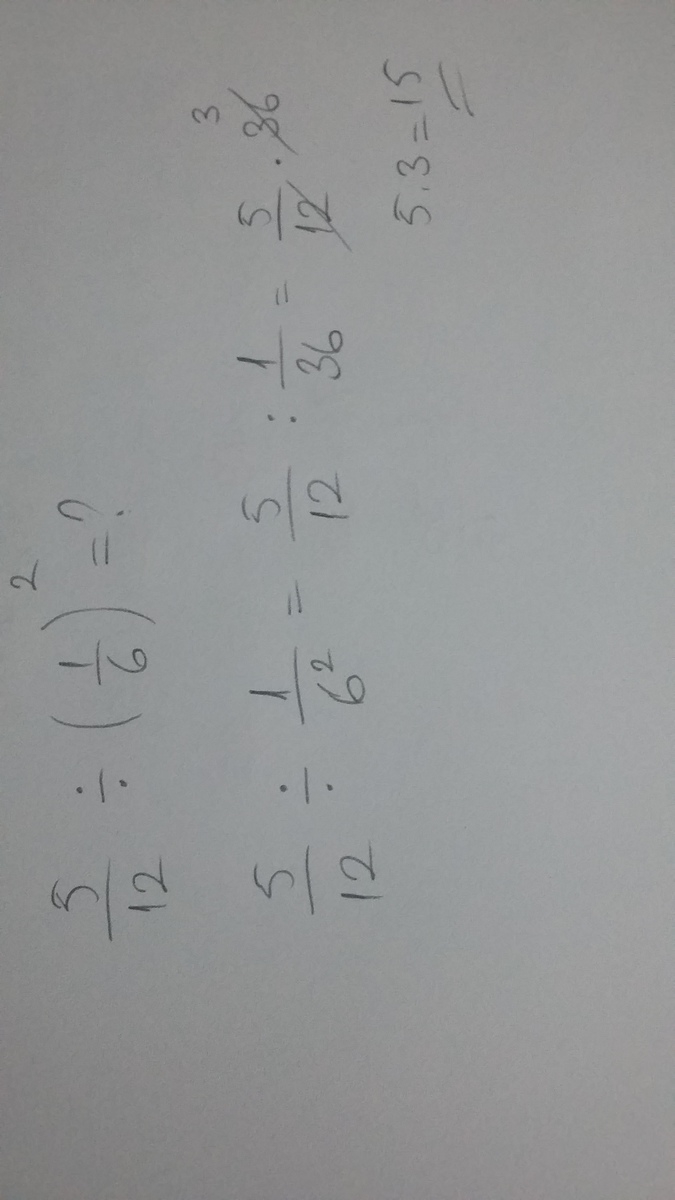 5/12 ÷ (1/6)² = ?
5/12 ÷ 1/6² = 5/12 : 1/36 = 5/12 · 36 3
5.3 = 15